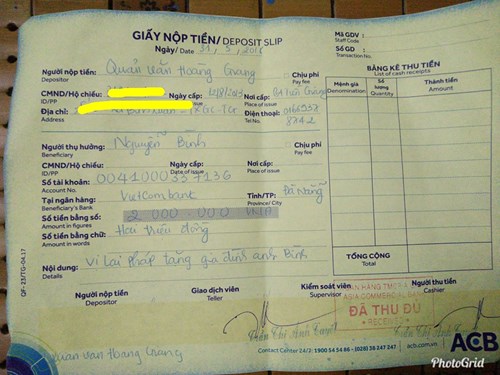 GIẤY NỘP TIỀN/ DEPOSIT SLIP
Ngày/ Date 31, 5,
Mã GDV :
Staff Code
Số GD :
Transaction No.
Người nộp tiền: Quản Văn Hoàng Giang
Depositor
Chịu phí
Pay fee
CMND/Hộ chiếu:
ID/PP
Ngày cấp:
Nơi cấp:
Place of issue
Địa chỉ:
Address
Điện thoại:
Tel No.
BẢNG KÊ THU TIỀN
List of cash receipts
Mệnh giá
Denomination
Số lượng
Quantity
Thành tiền
Amount
Người thụ hưởng: Nguyễn Bình
Beneficiary
Chịu phí
Pay fee
CMND/Hộ chiếu:
ID/PP
Ngày cấp:
Date of issue
Nơi cấp:
Place of issue
Số tài khoản: 0041000337136
Account No.
Tại ngân hàng: Vietcombank
Beneficiary's Bank
Tỉnh/TP: Đà Nẵng
Province/ City
Số tiền bằng số: 2 000 000 VNĐ
Amount in figures
Số tiền bằng chữ: Hai triệu đồng
Amount in words
Nội dung: Vi Lai Pháp tặng gia đình anh Bình
Details
TỔNG CỘNG
Total
Người nộp tiền
Depositor
Giao dịch viên
Teller
Kiểm soát viên
Supervisor
Người thu tiền
Cashier
ĐÃ THU ĐỦ
RECEIVED
Quản Văn Hoàng Giang
Contact Center 24/7: 1900 54 54 86 - (028) 38 247 247
acb.com.vn
ACB
QF-23/TG-04.17
PhotoGrid